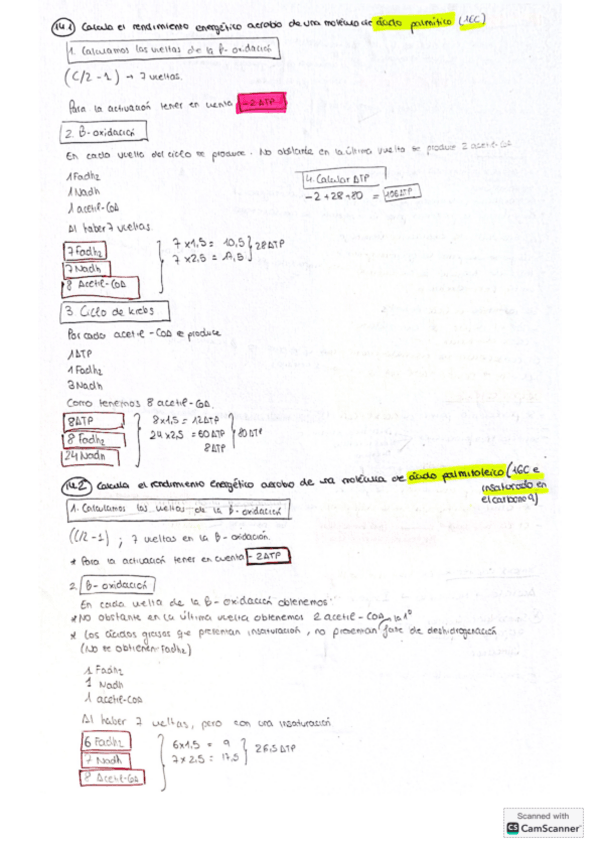 14.1 Calcula el rendimiento energético aerobio de una molécula de ácido palmítico (16C)
1. Calculamos las vueltas de la β-oxidación
(C/2 - 1) → 7 vueltas.
Para la activación tener en cuenta -2ATP
2. β-oxidación
En cada vuelta del ciclo se produce. No obstante en la última vuelta se produce 2 acetil-CoA
1 Fadh2
1 Nadh
1 acetil-CoA
4. Calcular ATP
-2+28+80 = 106 ATP
Al haber 7 vueltas.
7 Fadh2
7 Nadh
8 Acetil-CoA
7 x 1,5 = 10,5
7 x 2,5 = 17,5
28ATP
3 Ciclo de krebs
Por cada acetil-CoA se produce
1ATP
1 Fadh2
3 Nadh
Como tenemos 8 acetil-CoA.
8ATP
8 Fadh2
24 Nadh
8x1,5 = 12ATP
24x2,5 = 60ATP
8ATP
80ATP
14.2 Calcula el rendimiento energético aerobio de una molécula de ácido palmitoleico (16C e
insaturado en
el carbono 9)
1. Calculamos las vueltas de la β-oxidación
(C/2 - 1) ; 7 vueltas en la β-oxidación.
* Para la activación tener en cuenta -2ATP
2. β-oxidación
En cada vuelta de la β-oxidación obtenemos:
* No obstante en la última vuelta obtenemos 2 acetil-CoA
* Los ácidos grasos que presentan insaturación, no presentan la 1º fase de deshidrogenación
(No se obtienen Fadh2)
1 Fadh2
1 Nadh
1 acetil-CoA
Al haber 7 vueltas, pero con una insaturación
6 Fadh2
7 Nadh
8 Acetil-CoA
6x1,5 = 9
7x2,5 = 17,5
26,5ATP
Scanned with
CS CamScanner